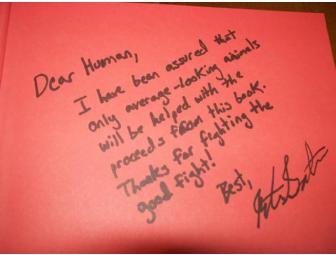 Dear Human,
I have been assured that
only average-looking animals
will be helped with the
proceeds from this book.
Thanks for fighting the
good fight!
Best,